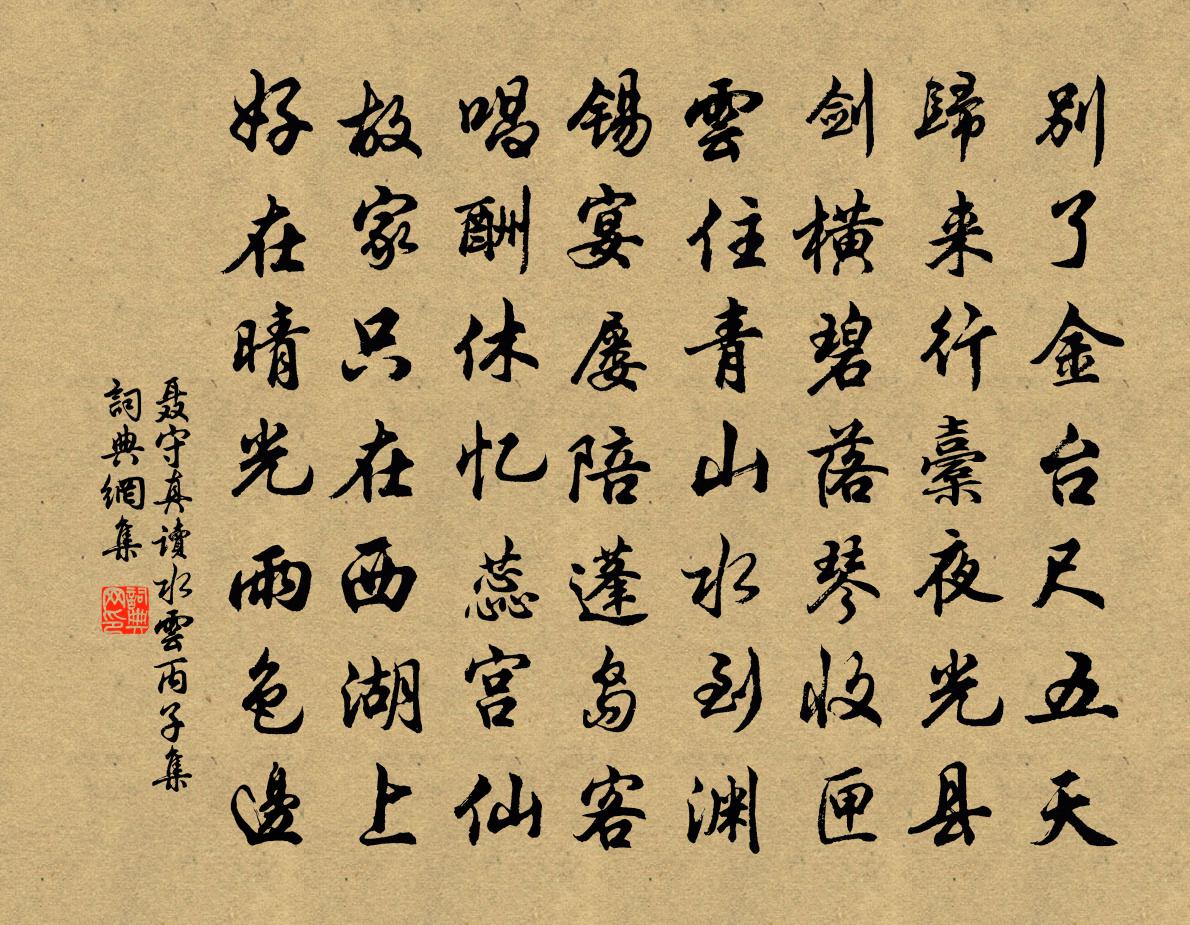 别了金台尺五天
歸来行橐夜光县
剑横碧落琴收匣
雲住青山水到渊
锡宴屡陪蓬岛客
唱酬休忆蕊宫仙
故家只在西湖上
好在晴光雨色邊
聂守真读水雲丙子集
詞典網集
詞典网印